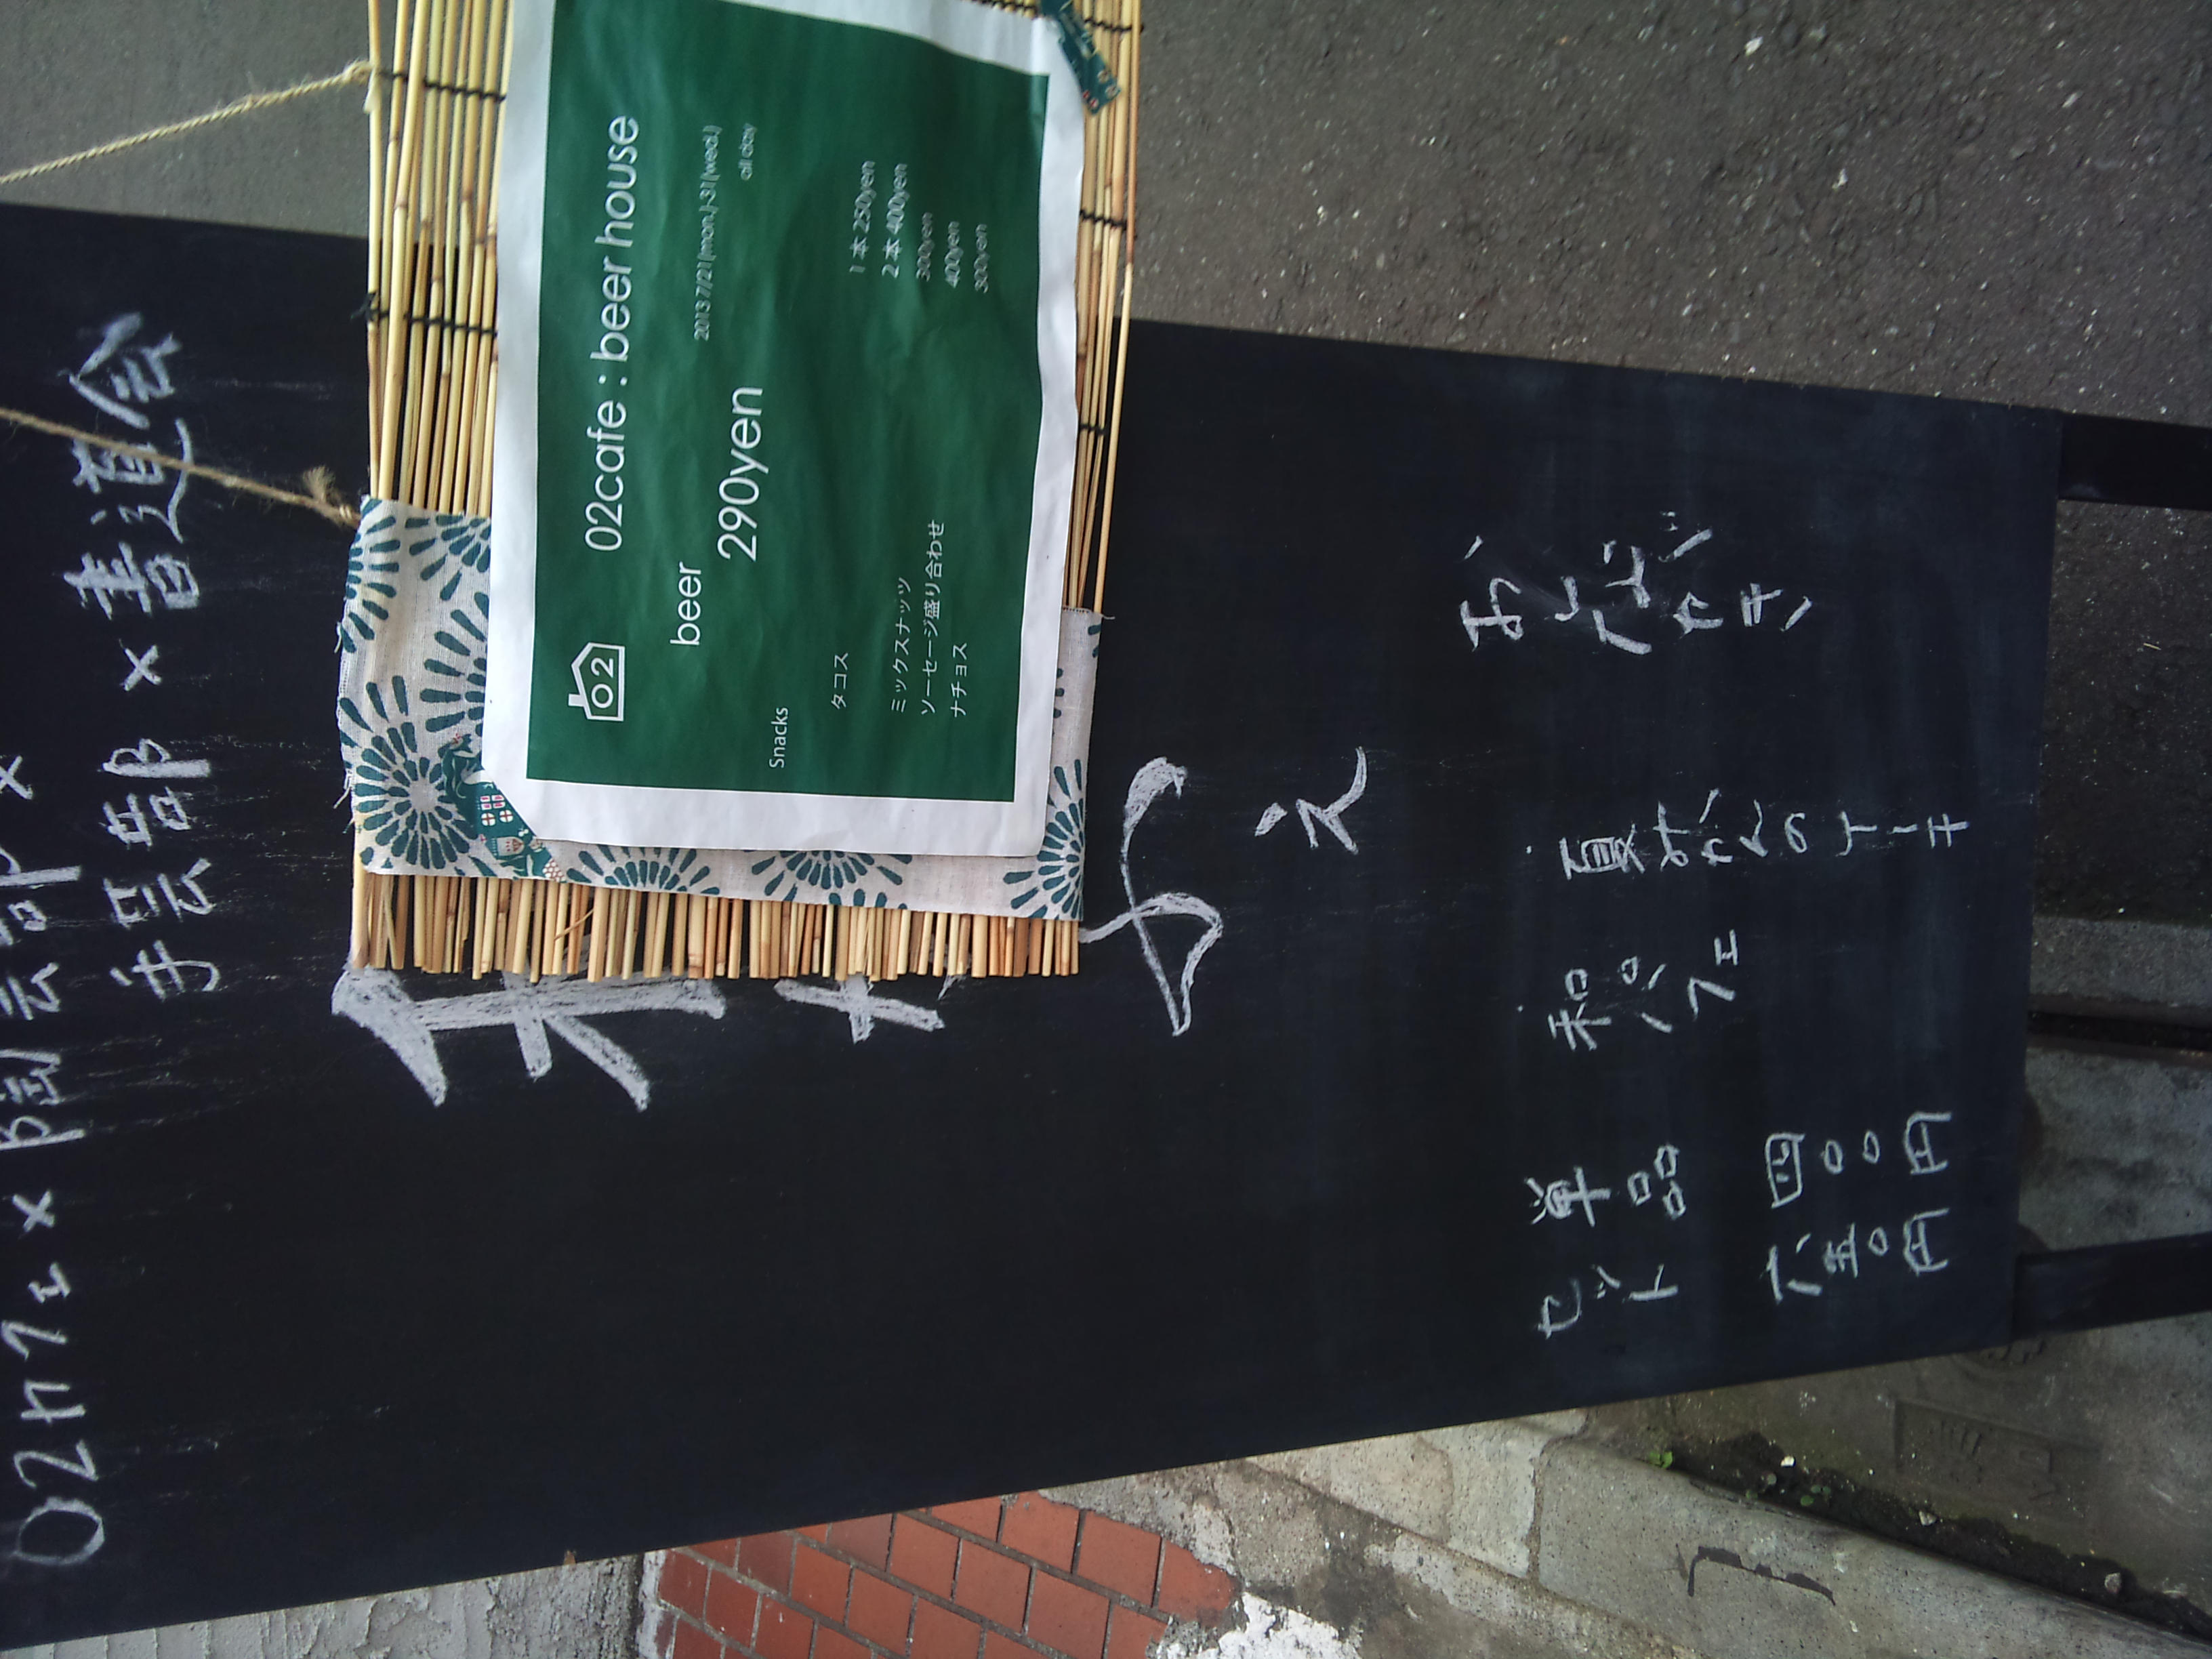 02カフェ×陶芸部×
手芸部×書道会
02
02cafe : beer house
beer
2013 7/21(mon.)-31(wed.)
290yen
all day
Snacks
タコス 1本 250yen
2本 400yen
ミックスナッツ 300yen
ソーセージ盛り合わせ 400yen
ナチョス 300yen
おしながき
夏みかんのケーキ
和パフェ
単品 四〇〇円
セット 六五〇円